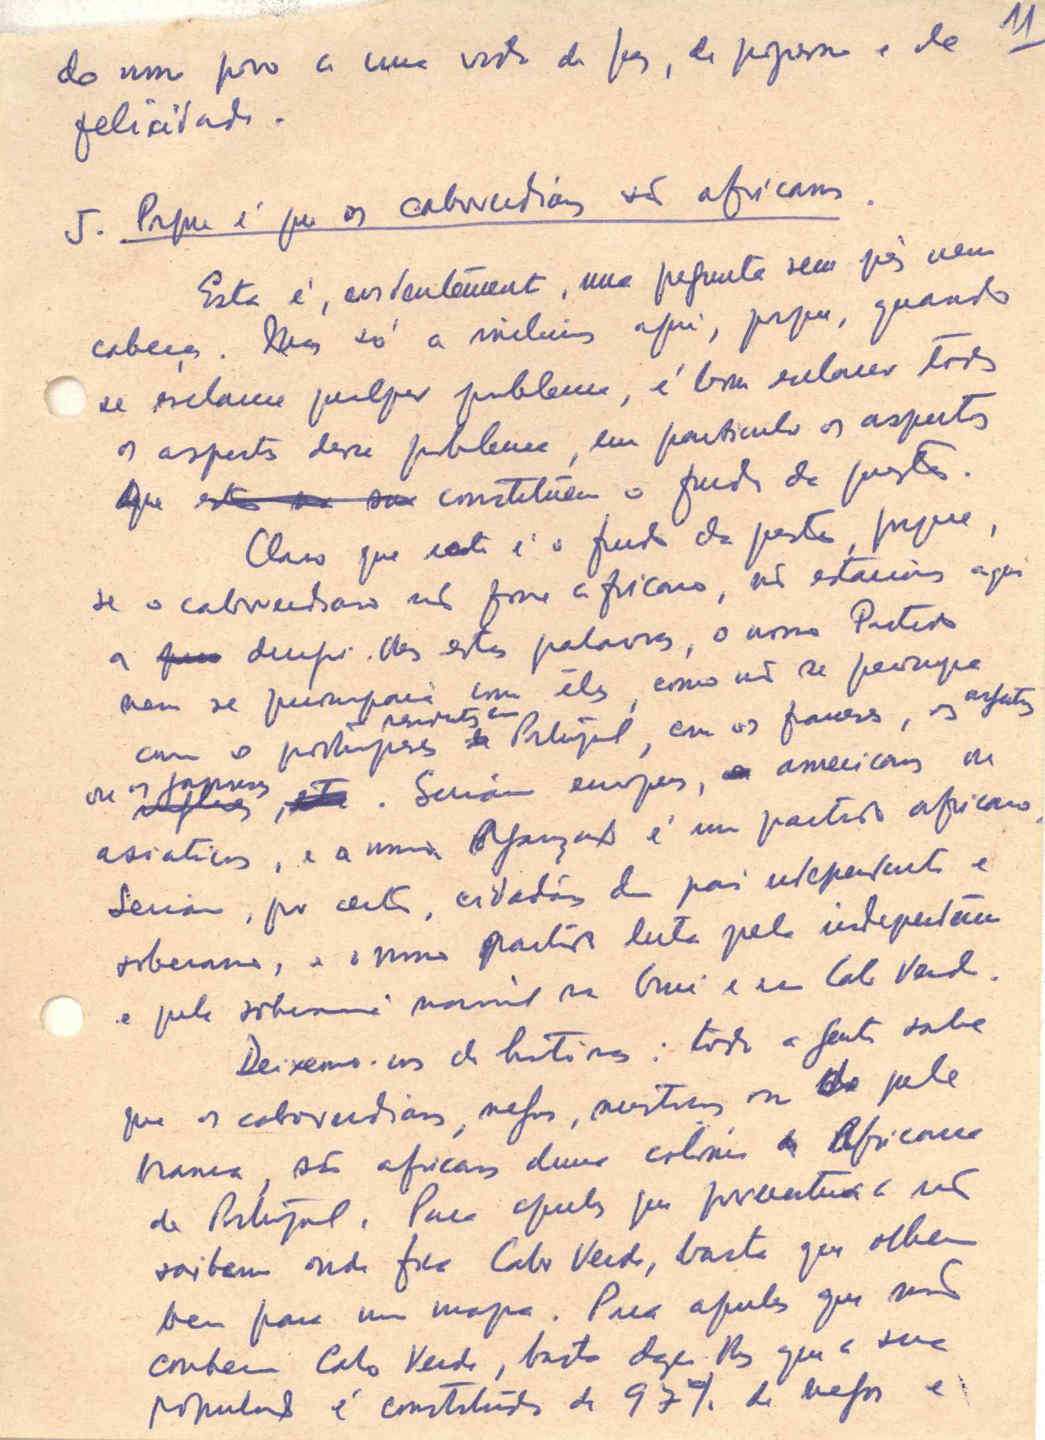 11
do nosso povo a uma vida de paz, de progresso e de
felicidade.
5. Porque é que os caboverdianos são africanos.
Esta é, evidentemente, uma pergunta sem pés nem
cabeça. Mas só a incluimos aqui, porque, quando
se esclarece qualquer problema, é bom esclarecer todos
os aspectos desse problema, em particular os aspectos
que constituem o fundo da questão.
Claro que este é o fundo da questão, porque,
se o caboverdiano não fosse africano, não estariamos aqui
a dirigir-lhes estas palavras, o nosso Partido
nem se preocuparia com êles, como não se preocupa
com os portugueses residentes em Portugal, com os franceses, os
ou os japoneses. Seriam europeus, americanos ou
asiaticos, e a nossa Organização é um partido africano.
Seriam, por certo, cidadãos dum país independente e
soberano, e o nosso Partido luta pela independência
e pela soberania nacional na Guiné e em Cabo Verde.
Deixemo-nos de histórias: toda a gente sabe
que os caboverdianos, negros, mestiços ou de pele
branca, são africanos duma colónia Africana
de Portugal. Para aqueles que porventura não
saibam onde fica Cabo Verde, basta que olhem
bem para um mapa. Para aqueles que não
conhecem Cabo Verde, basta dizer-lhes que a sua
população é constituída de 97% de negros e